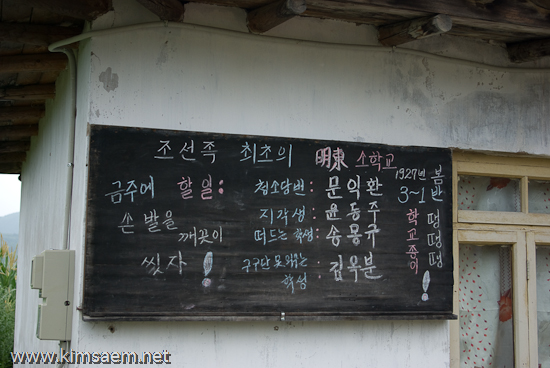 조선족 최초의 明東 소학교
1927년 봄
3~1반
금주에 할일:
손 발을
깨끗이
씻자!
청소당번: 문익환
지각생: 윤동주
떠드는 학생: 송몽규
구구단 못외우는
학생: 김옥분
학교종이
땡
땡
땡!
www.kimsaem.net